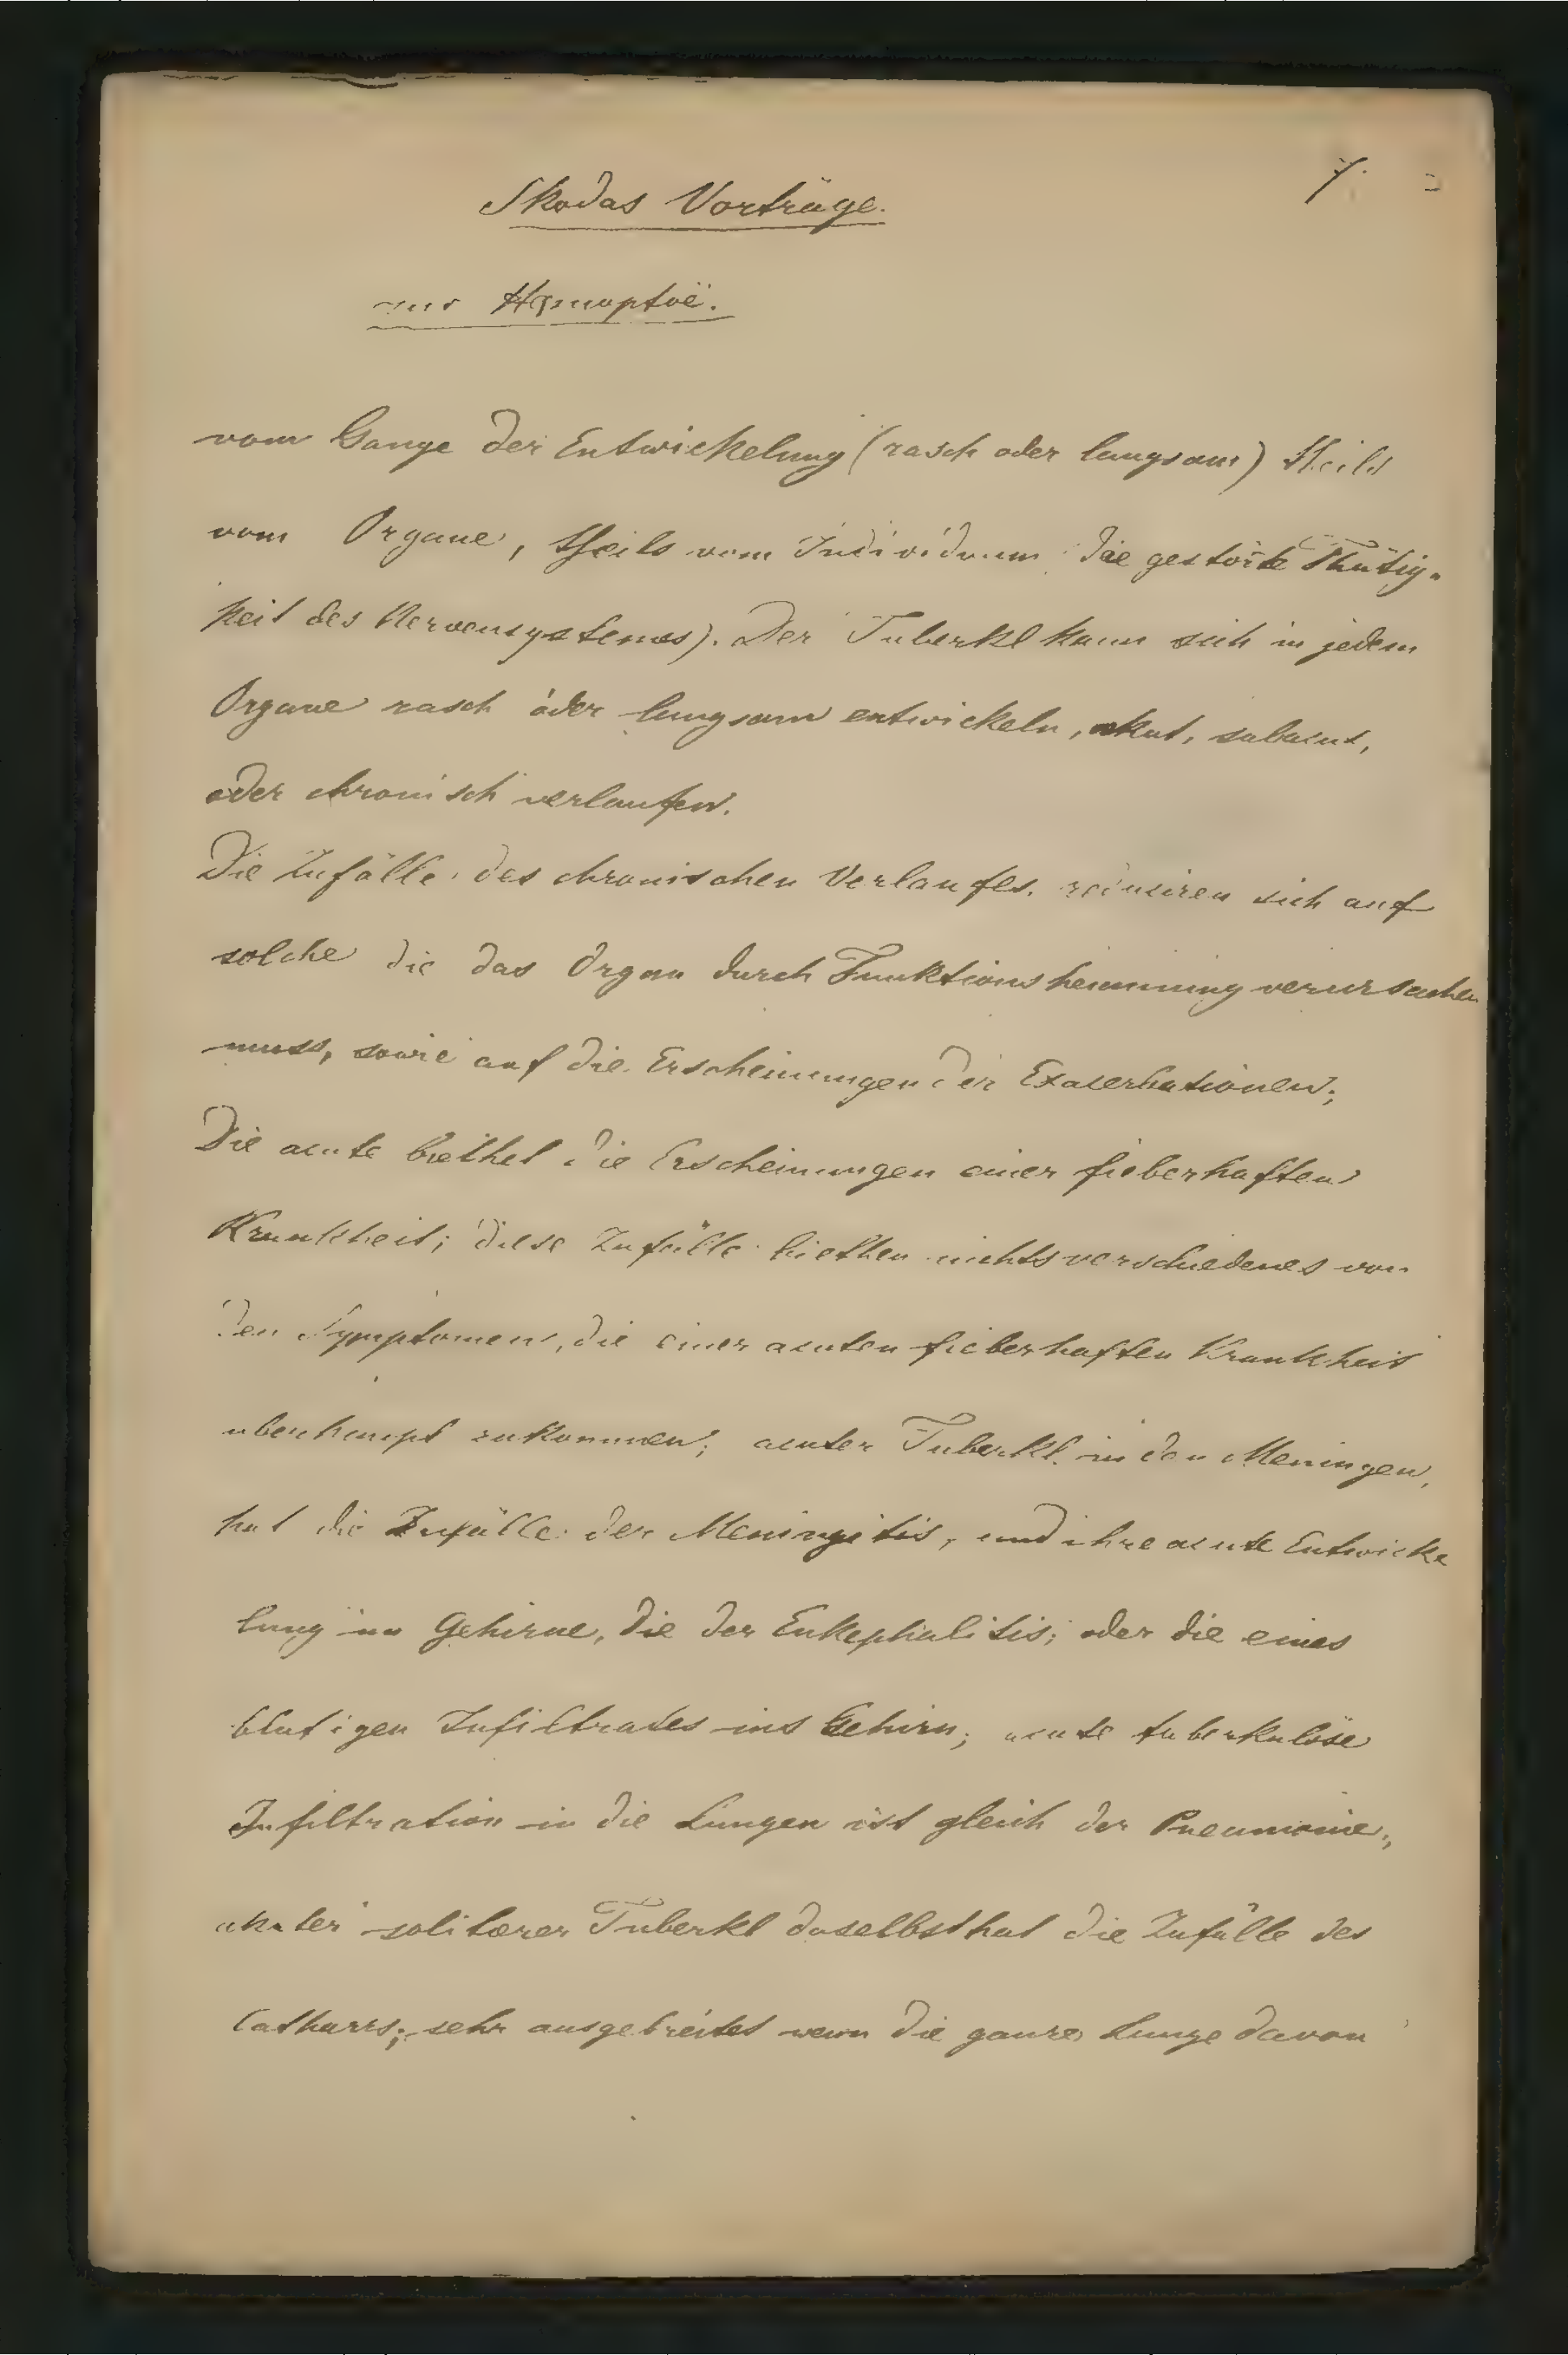 7.
Skodas Vorträge.
Hæmoptoë.
vom Gange der Entwickelung (rasch oder langsam) theils
vom Organe, theils vom Individuum die gestörte Thätig-
keit des Nervensystemes). Der Tuberkl kann sich in jedem
Organe rasch oder langsam entwickeln, akut, subacut,
oder chronisch verlaufen.
Die Zufälle des chronischen Verlaufes reduciren sich auf
solche die das Organ durch Funktionshemmung verursachen
muss, sowie auf die Erscheinungen der Exacerbationen;
Die acute biethet die Erscheinungen einer fieberhaften
Krankheit; diese Zufälle biethen nichts verschiedenes von
den Symptomen, die einer acuten fieberhaften Krankheit
überhaupt zukommen; acuter Tuberkl. in den Meningen,
hat die Zufälle der Meningitis, und ihre acute Entwicke
lung im Gehirne, die der Enkephalitis; oder die eines
blutigen Infiltrates ins Gehirn; acute tuberkulöse
Infiltration in die Lungen ist gleich der Pneumonie;
akuter solitærer Tuberkl daselbst hat die Zufälle des
Catharrs; sehr ausgebreitet wenn die ganze Lunge davon